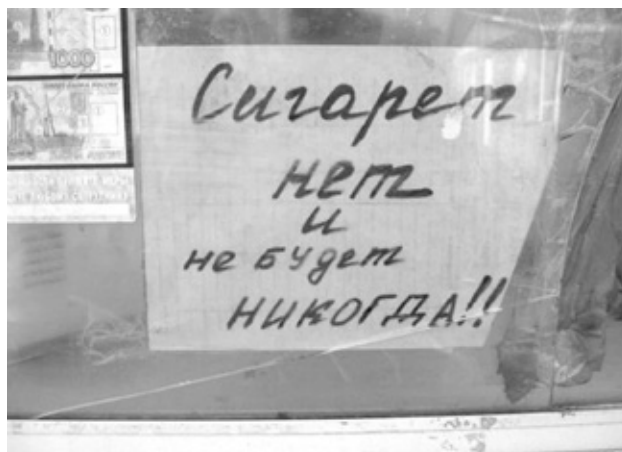 1000
Сигарет
нет
и
не будет
НИКОГДА!!